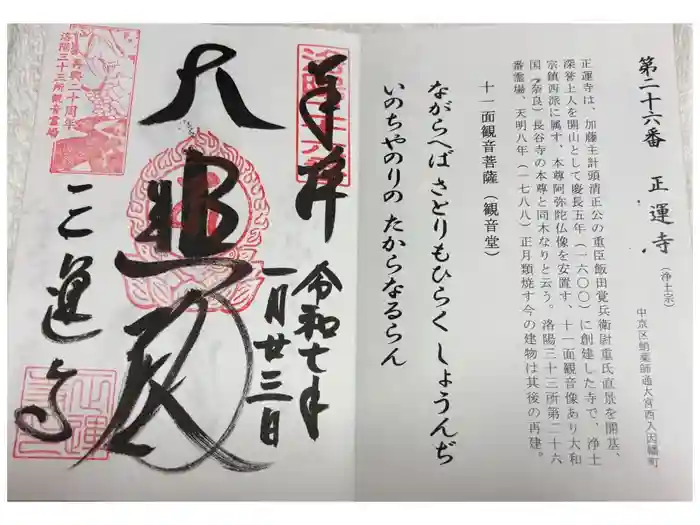 第二十六番 正運寺(浄土宗)
中京区蛸薬師通大宮西入因幡町
正運寺は、加藤主計頭清正公の重臣飯田覚兵衛尉重氏直景を開基、
深誉上人を開山として慶長五年(一六〇〇)に創建した寺で、浄土
宗鎮西派に属す。本尊阿弥陀仏像を安置す、十一面観音像あり大和
国(奈良)長谷寺の本尊と同木なりと云う。洛陽三十三所第二十六
番霊場、天明八年(一七八八)正月類焼す今の建物は其後の再建。
十一面観音菩薩(観音堂)
ながらへば さとりもひらく しょうんぢ
いのちやのりの たからなるらん
奉拝
令和七年
一月廿三日
大悲殿
正運寺
再興二十周年
洛陽三十三所観音霊場